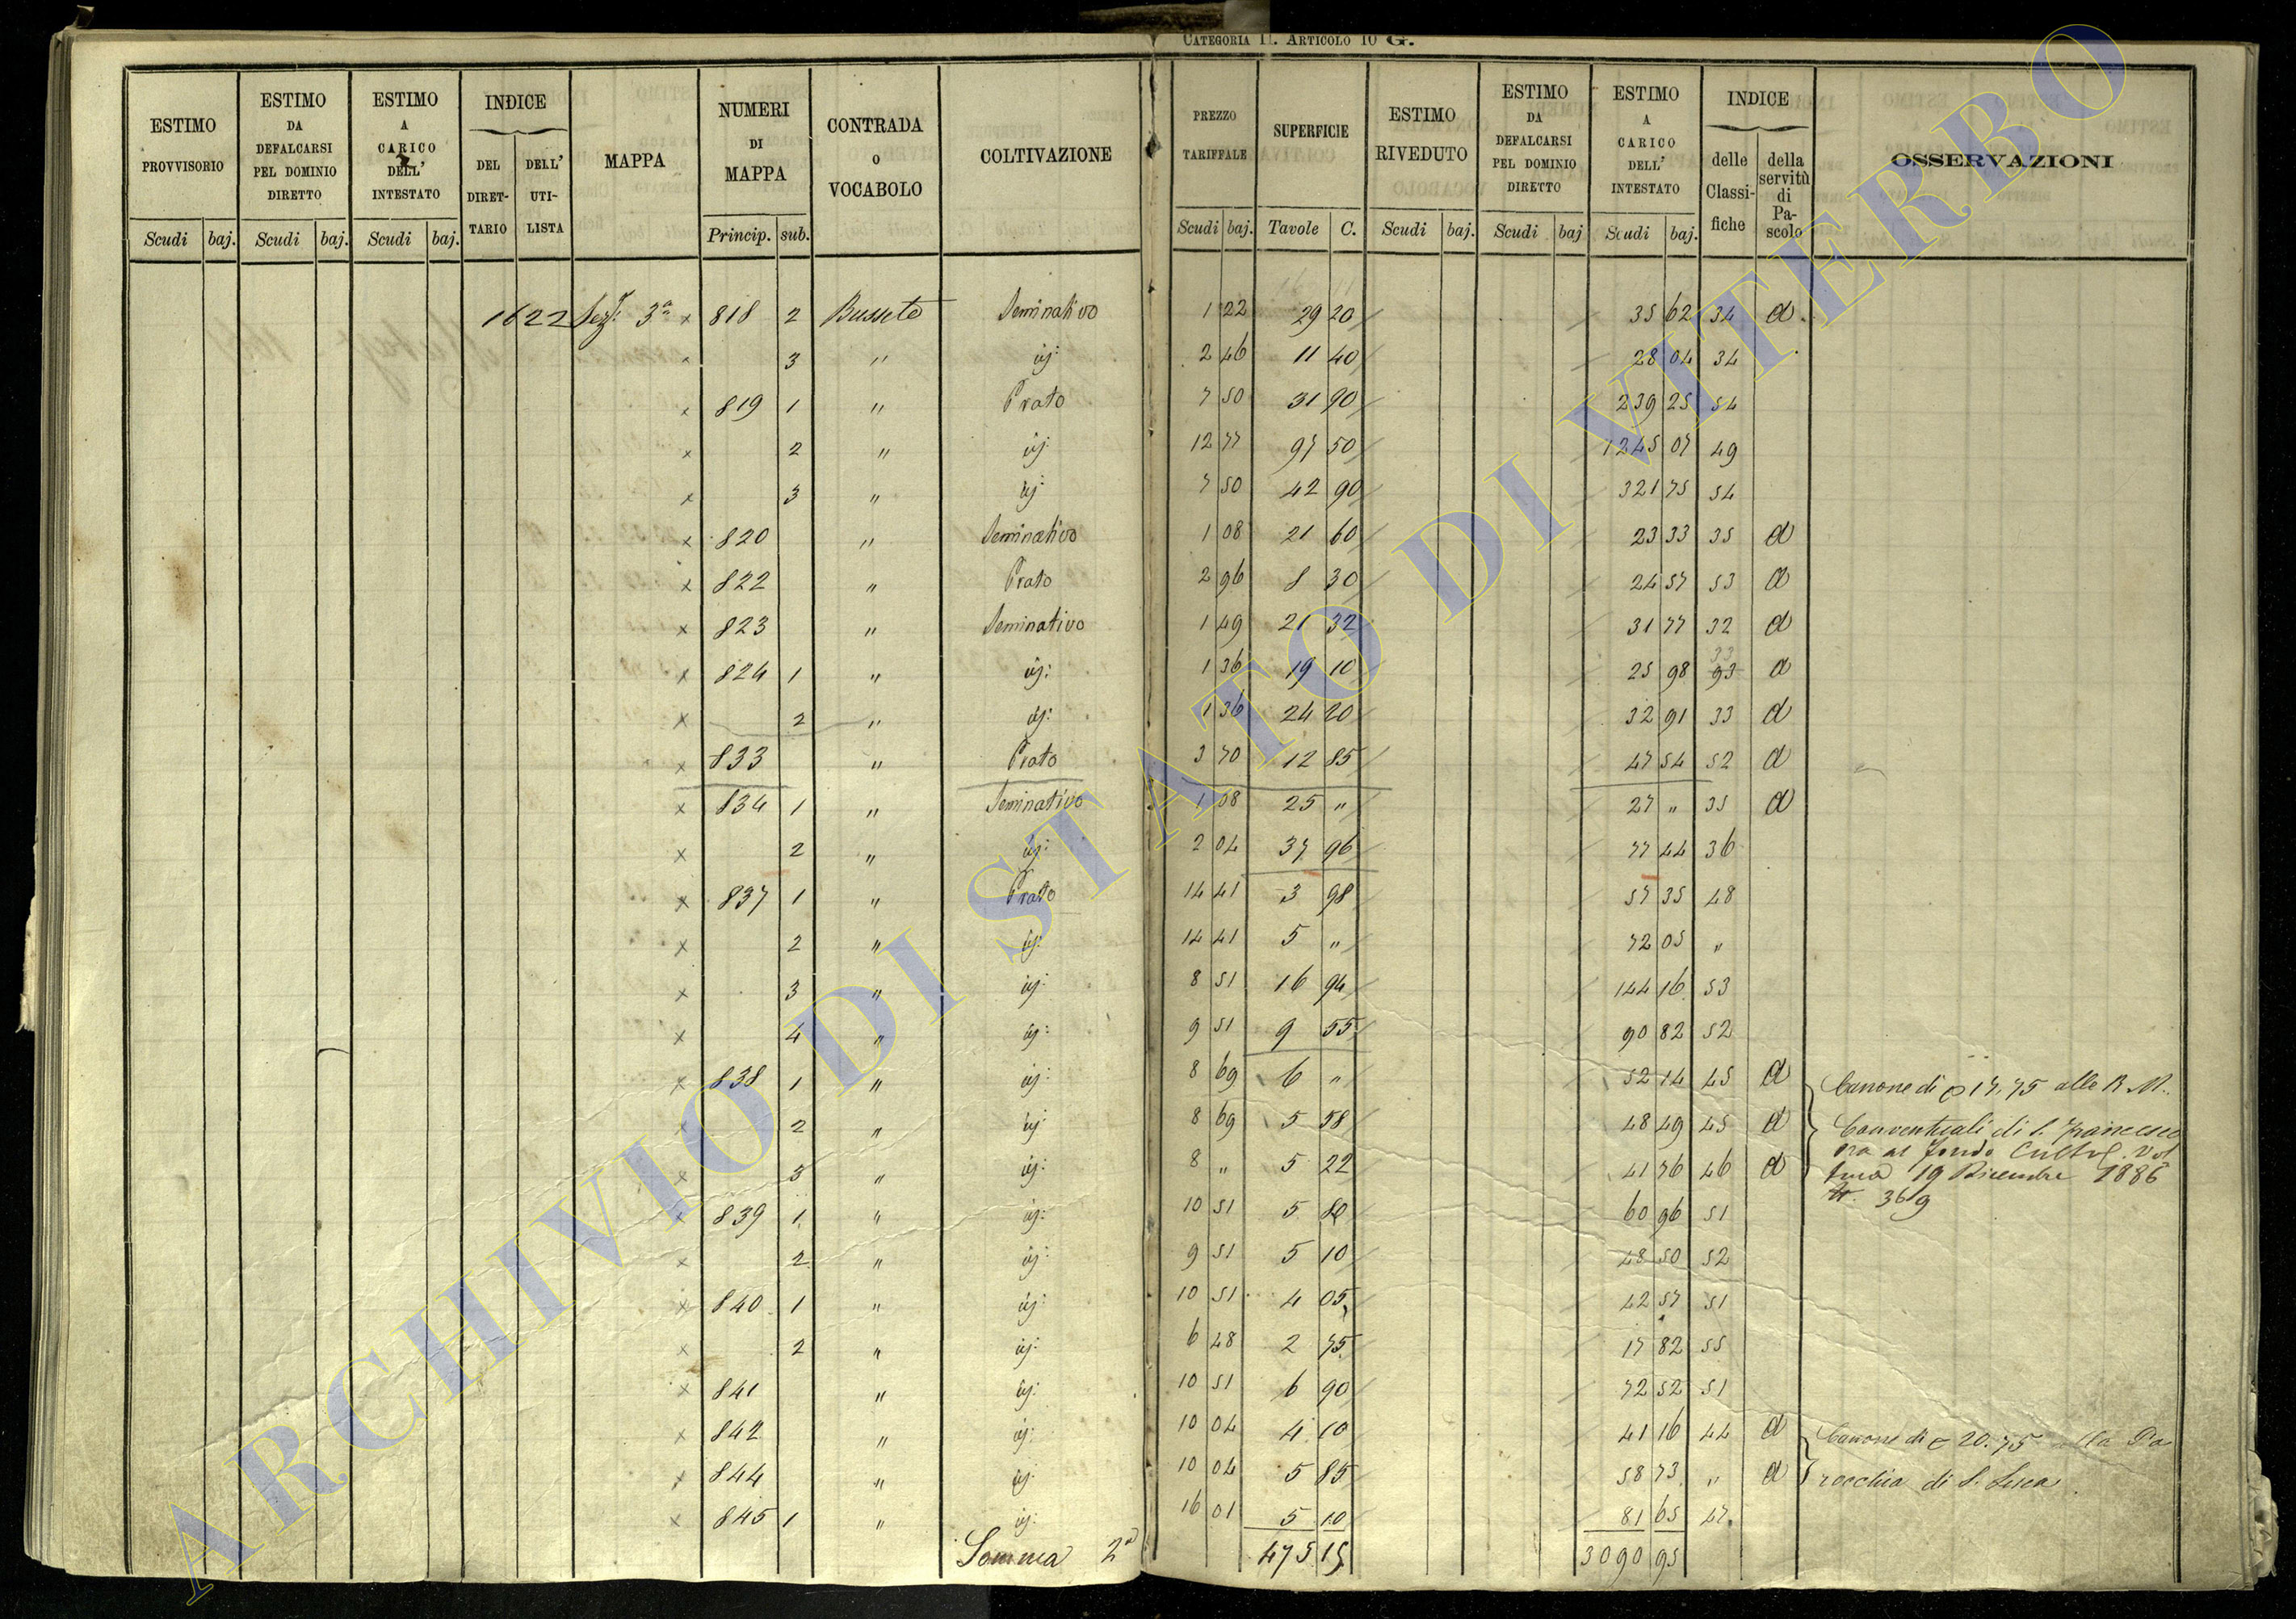 CATEGORIA II. ARTICOLO 10 G.
ESTIMO PROVVISORIO Scudi baj. ESTIMO DA DEFALCARSI PEL DOMINIO DIRETTO Scudi baj. ESTIMO A CARICO DELL' INTESTATO Scudi baj. INDICE DEL DIRETTARIO DELL' UTILISTA MAPPA NUMERI DI MAPPA Princip. sub. CONTRADA O VOCABOLO COLTIVAZIONE PREZZO TARIFFALE Scudi baj. SUPERFICIE Tavole C. ESTIMO RIVEDUTO Scudi baj. ESTIMO DA DEFALCARSI PEL DOMINIO DIRETTO Scudi baj ESTIMO A CARICO DELL' INTESTATO Scudi baj. INDICE delle Classifiche della servitù di Pascolo OSSERVAZIONI
1622 Sez.e 3a x 818 2 Busseto Seminativo 1 22 29 20 35 62 34 d
x 3 " id: 2 46 11 40 28 04 34
x 819 1 " Prato 7 50 31 90 239 25 54
x 2 " id: 12 77 97 50 1245 07 49
x 3 " id: 7 50 42 90 321 75 54
x 820 " Seminativo 1 08 21 60 23 33 35 d
x 822 " Prato 2 96 8 30 24 57 53 d
x 823 " Seminativo 1 49 21 32 31 77 32 d
x 824 1 " id: 1 36 19 10 25 98 93 33 d
x 2 " id: 1 36 24 20 32 91 33 d
x 833 " Prato 3 70 12 85 47 54 52 d
x 834 1 " Seminativo 1 08 25 " 27 " 35 d
x 2 " id: 2 04 37 96 77 44 36
x 837 1 " Prato 14 41 3 98 57 35 48
x 2 " id: 14 41 5 " 72 05 "
x 3 " id: 8 51 16 94 144 16 53
x 4 " id: 9 51 9 55 90 82 52
x 838 1 " id: 8 69 6 " 52 14 45 d Canone di 17.75 alli R. M.
x 2 " id: 8 69 5 58 48 49 45 d Conventuali di S. Francesco
ora al Fondo Culto
x 3 " id: 8 " 5 22 41 76 46 d 19 Dicembre 1886
369
x 839 1 " id: 10 51 5 80 60 96 51
x 2 " id: 9 51 5 10 48 50 52
x 840 1 " id: 10 51 4 05 42 57 51
x 2 " id: 6 48 2 75 17 82 55
x 841 " id: 10 51 6 90 72 52 51
x 842 " id: 10 04 4 10 41 16 44 d Canone di 20.75 alla Pa
x 844 " id: 10 04 5 85 58 73 " d rocchia di S. Luca
x 845 1 " id: 16 01 5 10 81 65 47
Somma 2a 475 15 3090 95
ARCHIVIO DI STATO DI VITERBO